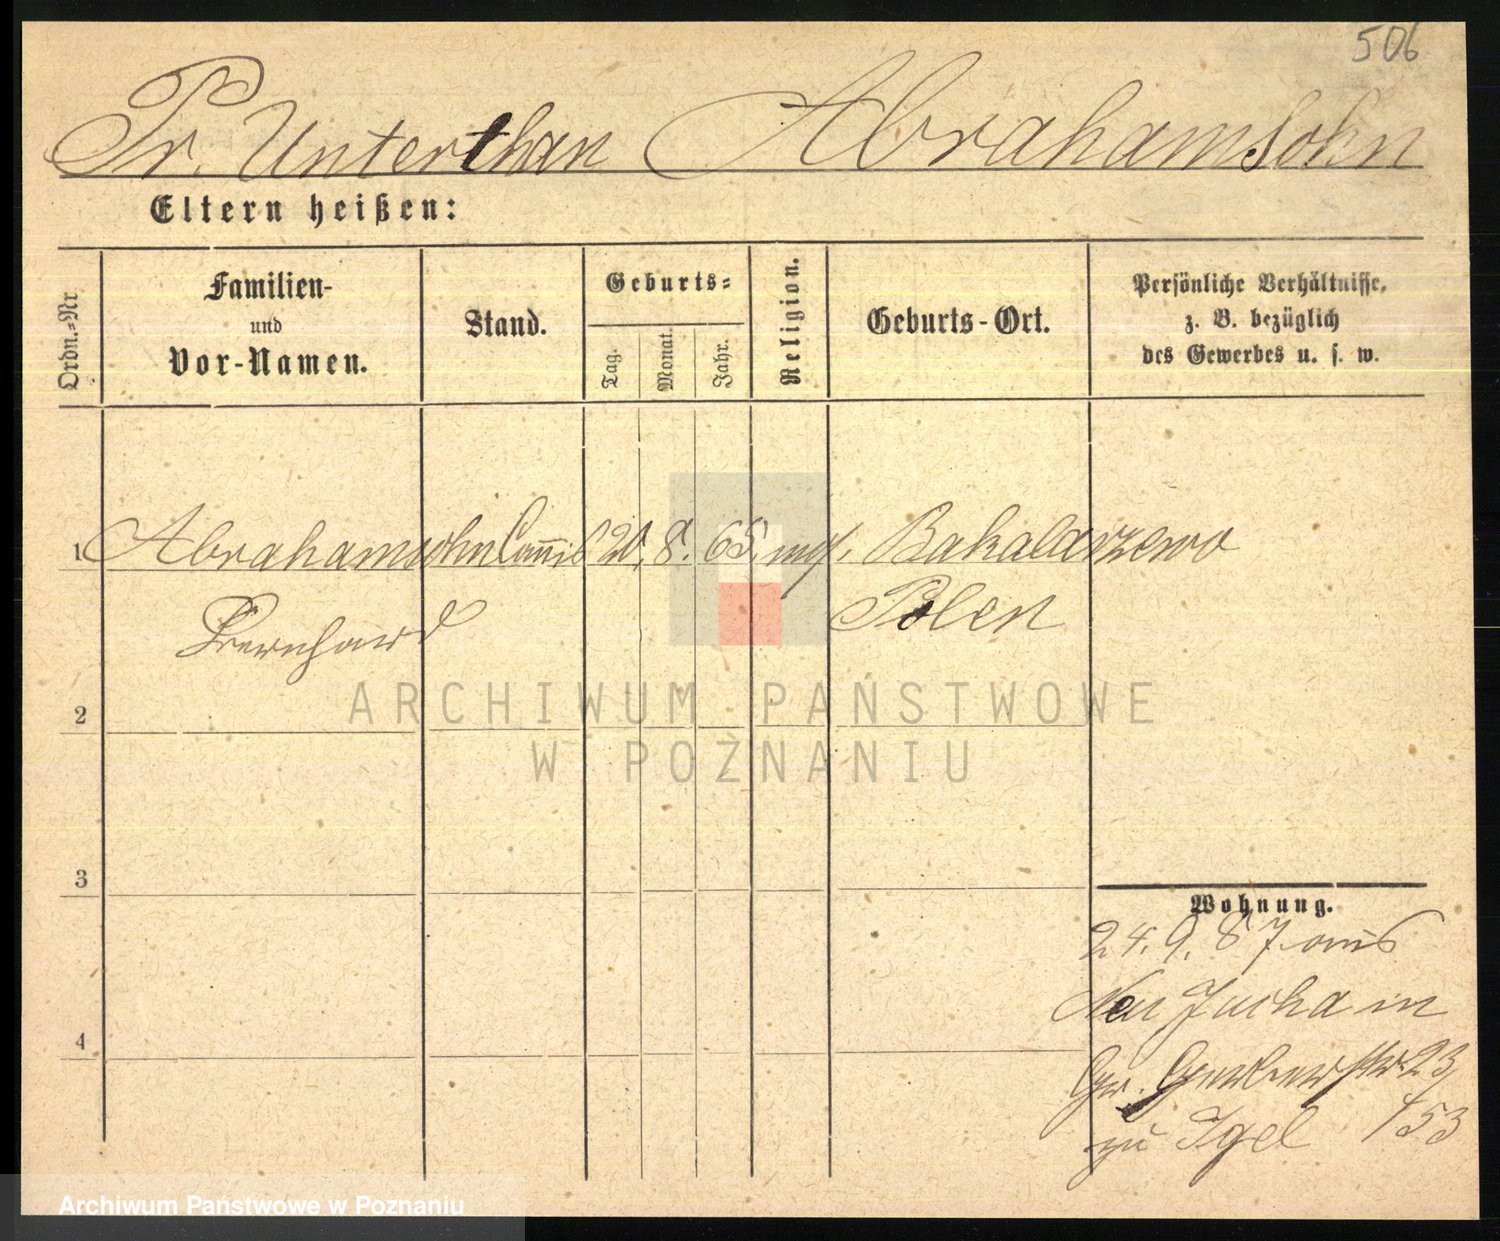 506
Pr. Unterthan Abrahamsohn
Eltern heißen:
Ordn.=Nr
Familien-
und
Vor-Namen.
Stand.
Geburts=
Tag.
Monat.
Jahr.
Religion.
Geburts-Ort.
Persönliche Verhältnisse,
z. B. bezüglich
des Gewerbes u. s. w.
1 Abrahamsohn Commis 20. 8. 65. mos. Bakalarzewo
Bernhard
Polen
ARCHIWUM PAŃSTWOWE
W POZNANIU
2
3
4
Wohnung.
24. 9. 87 aus
Neu Jucha in
Gr. Gerberstr. 23
zu Igel /53
Archiwum Państwowe w Poznaniu